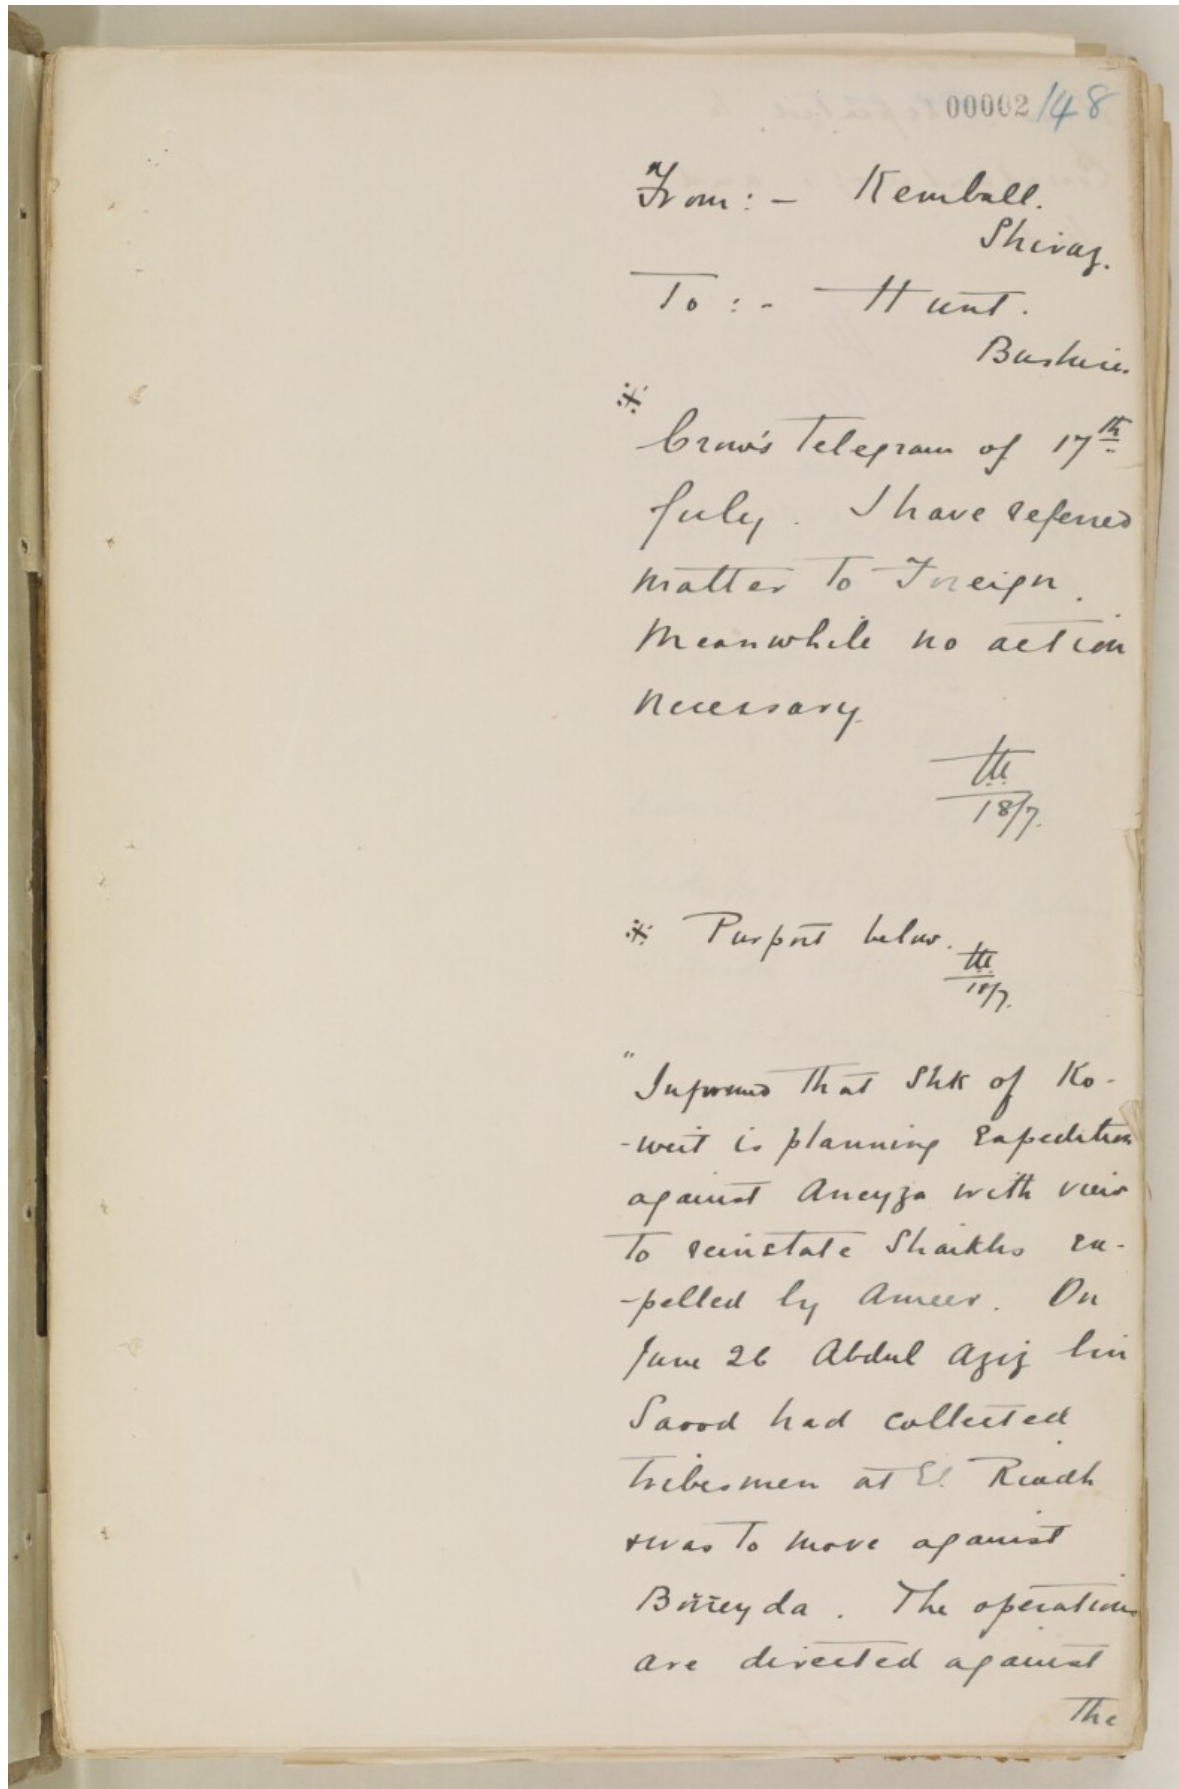 00002 148
From: - Kemball.
Shiraz.
To: - Hunt.
Bushire.
※
Crow's Telegram of 17th
July. I have referred
matter to Foreign.
Meanwhile no action
necessary.
18/7.
※ Purport below.
18/7.
"Informed that Shk of Ko-
-weit is planning Expedition
against Aneyza with view
to reinstate Shaikhs ex-
-pelled by Ameer. On
June 26 Abdul Aziz bin
Saood had collected
tribesmen at El Riadh
& was to move against
Büreyda. The operations
are directed against
The